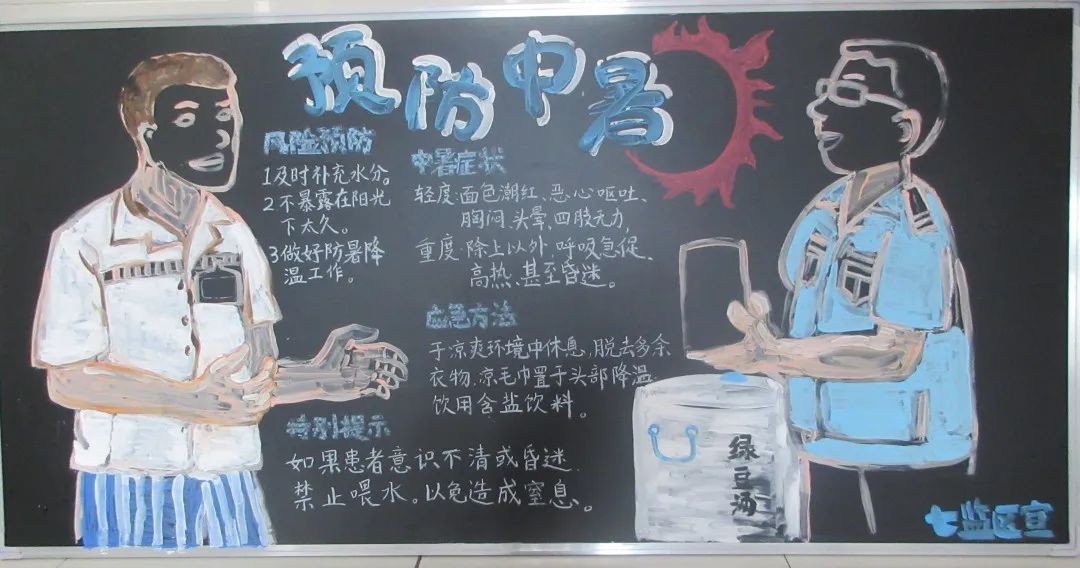 预防中暑
风险预防
1及时补充水分。
2不暴露在阳光
下太久。
3做好防暑降
温工作。
中暑症状
轻度:面色潮红、恶心呕吐、
胸闷、头晕、四肢无力,
重度:除上以外,呼吸急促、
高热、甚至昏迷。
应急方法
于凉爽环境中休息,脱去多余
衣物,凉毛巾置于头部降温,
饮用含盐饮料。
特别提示
如果患者意识不清或昏迷,
禁止喂水。以免造成窒息。
绿豆汤
七监区宣